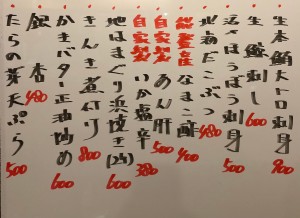 生本鮪大トロ刺身 900
刺し 600
ほうぼう刺身 500
だこぶつ 480
なまこ酢 400
自家製 あん肝 500
自家製 いか塩辛 380
地はまぐり浜焼き 600
きんき煮付け 800
かきバター正油炒め 600
銀杏 480
たらの芽天ぷら 500